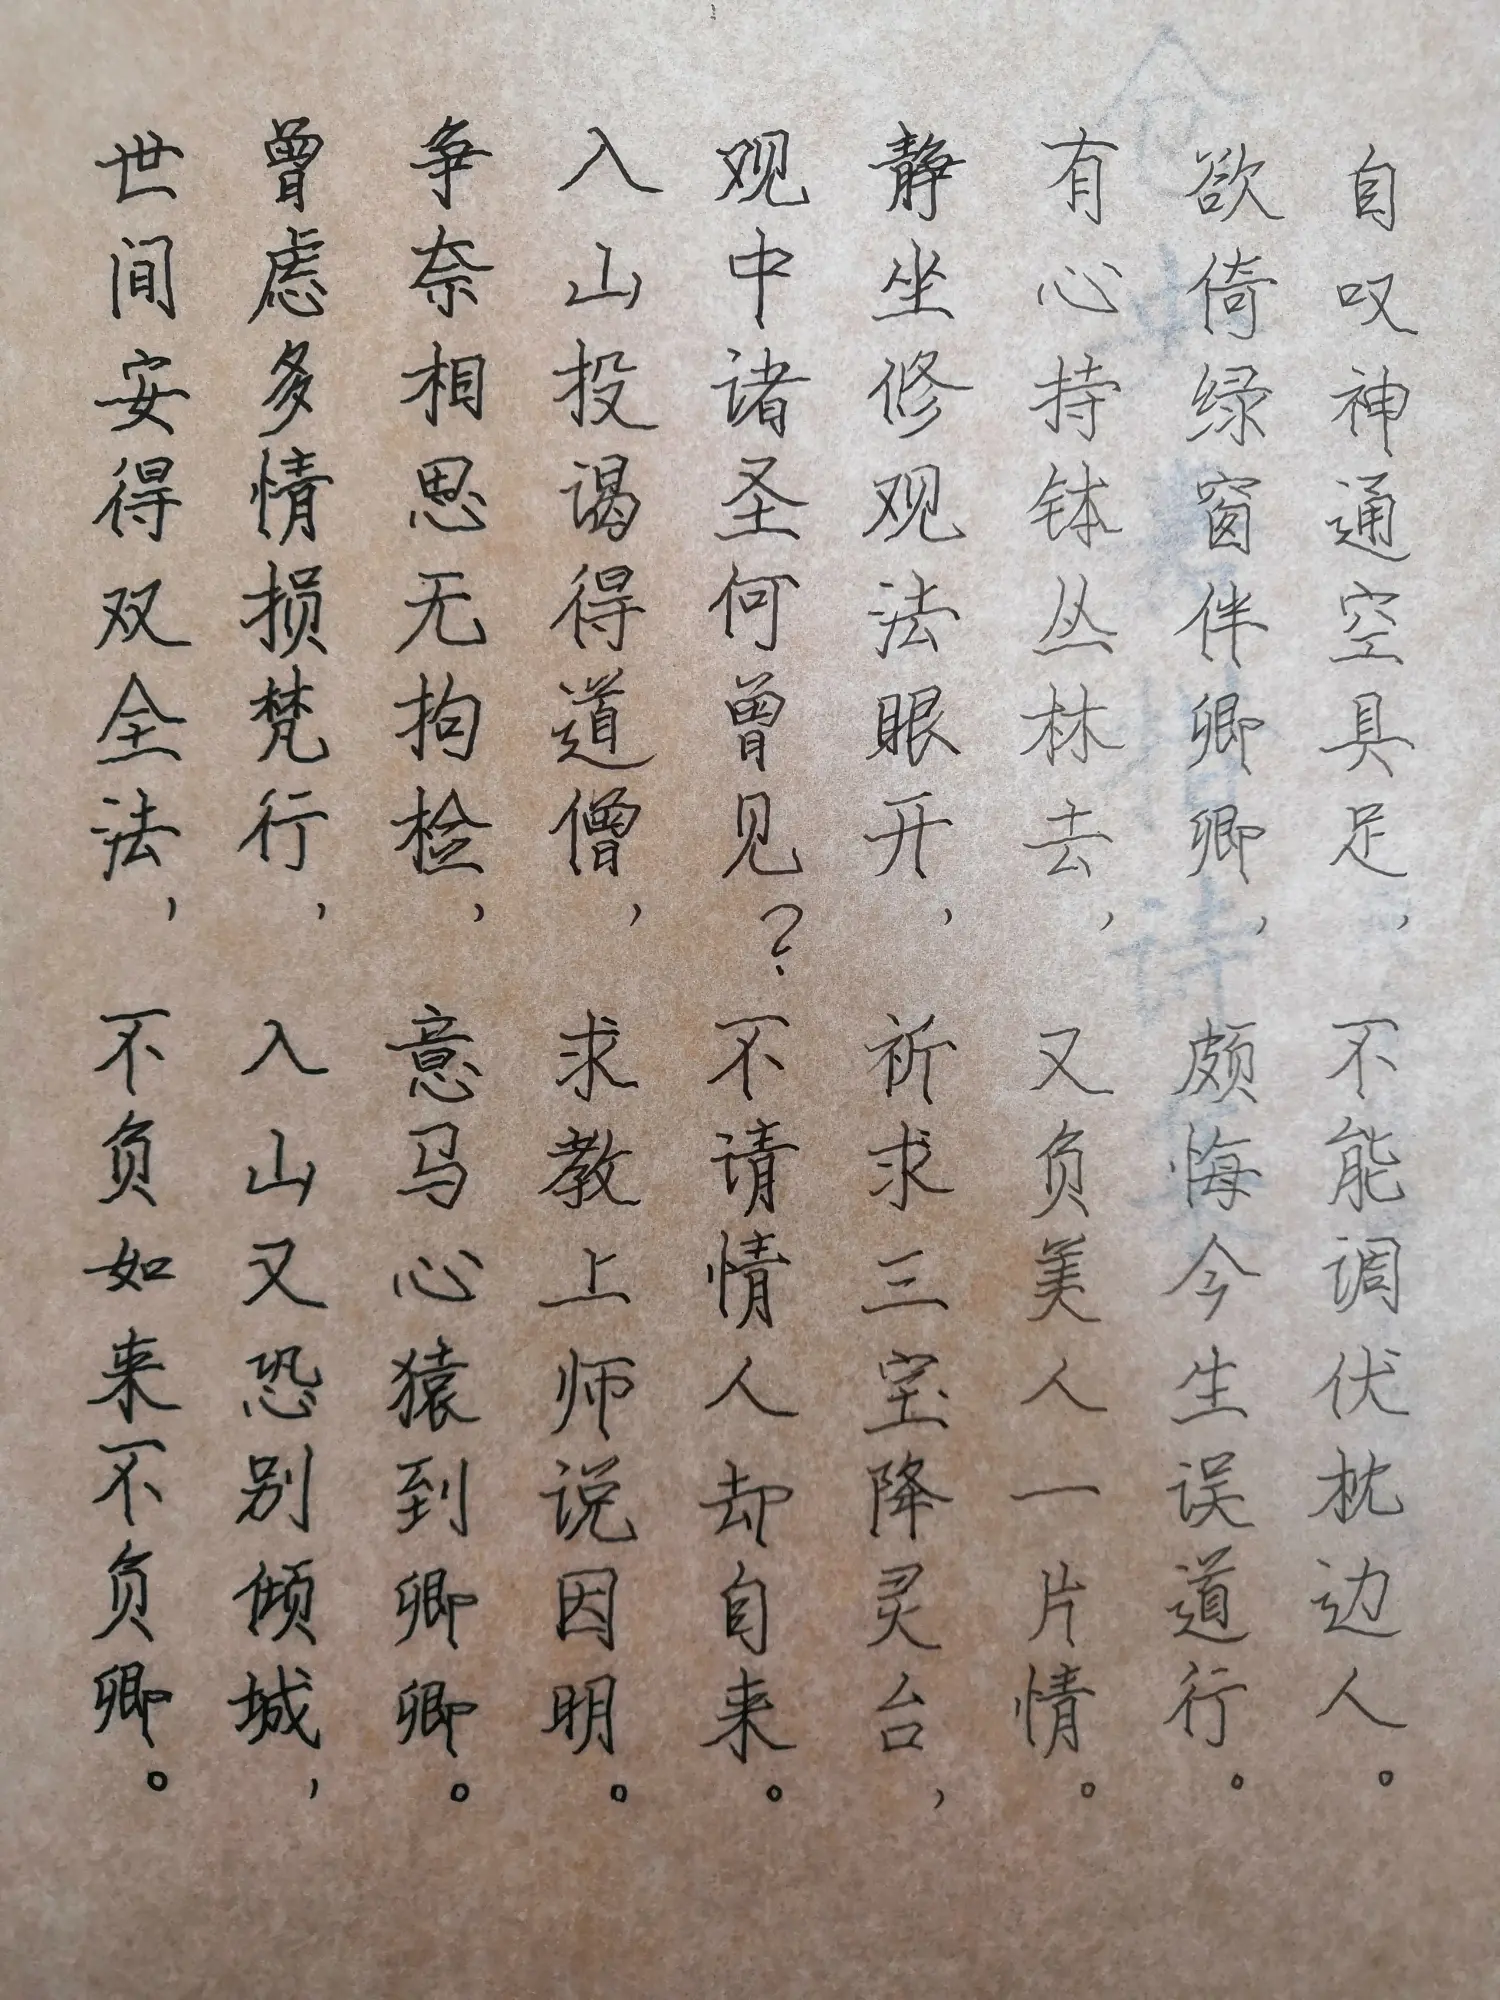 自叹神通空具足，不能调伏枕边人。
欲倚绿窗伴卿卿，颇悔今生误道行。
有心持钵丛林去，又负美人一片情。
静坐修观法眼开，祈求三宝降灵台，
观中诸圣何曾见？不请情人却自来。
入山投谒得道僧，求教上师说因明。
争奈相思无拘检，意马心猿到卿卿。
曾虑多情损梵行，入山又恐别倾城，
世间安得双全法，不负如来不负卿。